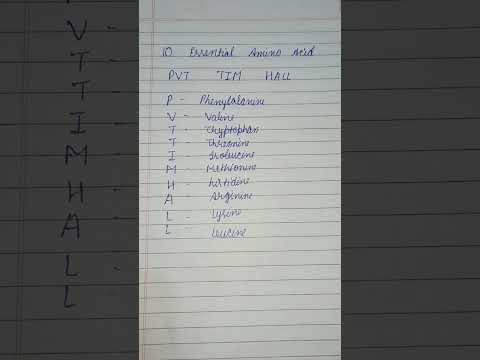 10 Essential Amino Acid
PVT TIM HALL
P - Phenylalanine
V - Valine
T - Tryptophan
T - Threonine
I - Isoleucine
M - Methionine
H - histidine
A - Arginine
L - Lysine
L - leucine
V
T
T
I
M
H
A
L -
L